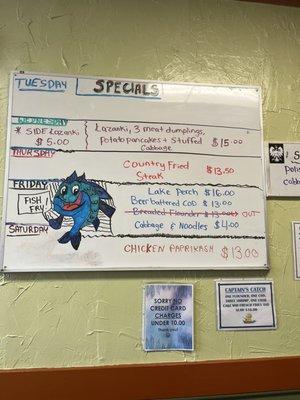 TUESDAY SPECIALS
WEDNESDAY
* SIDE Lazanki
$5.00
Lazanki, 3 meat dumplings,
Potato pancakes + Stuffed
Cabbage
$15.00
THURSDAY
Country Fried
Steak
$13.50
FRIDAY
FISH
FRY
Lake Perch $16.00
Beer battered COD $13.00
Breaded Flounder $13.00 OUT
Cabbage & Noodles $4.00
SATURDAY
CHICKEN PAPRIKASH $13.00
SORRY NO
CREDIT CARD
CHARGES
UNDER 10.00
Thank you!
CAPTAIN'S CATCH
ONE FLOUNDER, ONE COD,